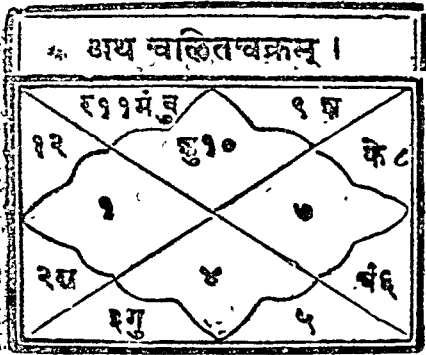 अथ चलितचक्रम् ।
र११मंबु ९ श
१२ शु१० के८
१ ७
२रा ४ चं६
३गु ५